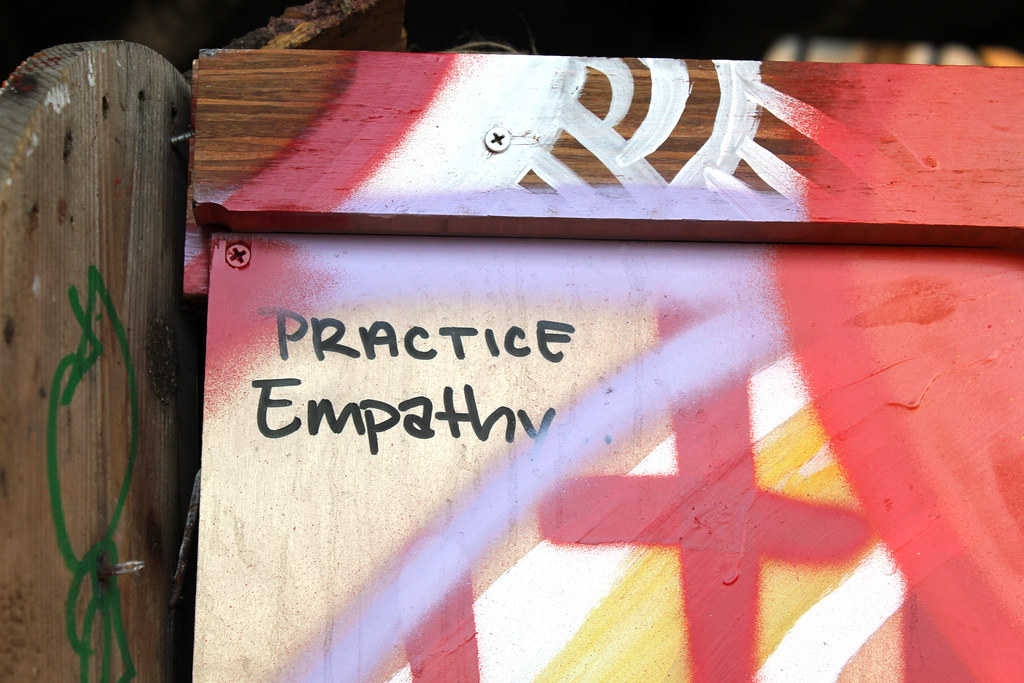 PRACTICE
Empathy...